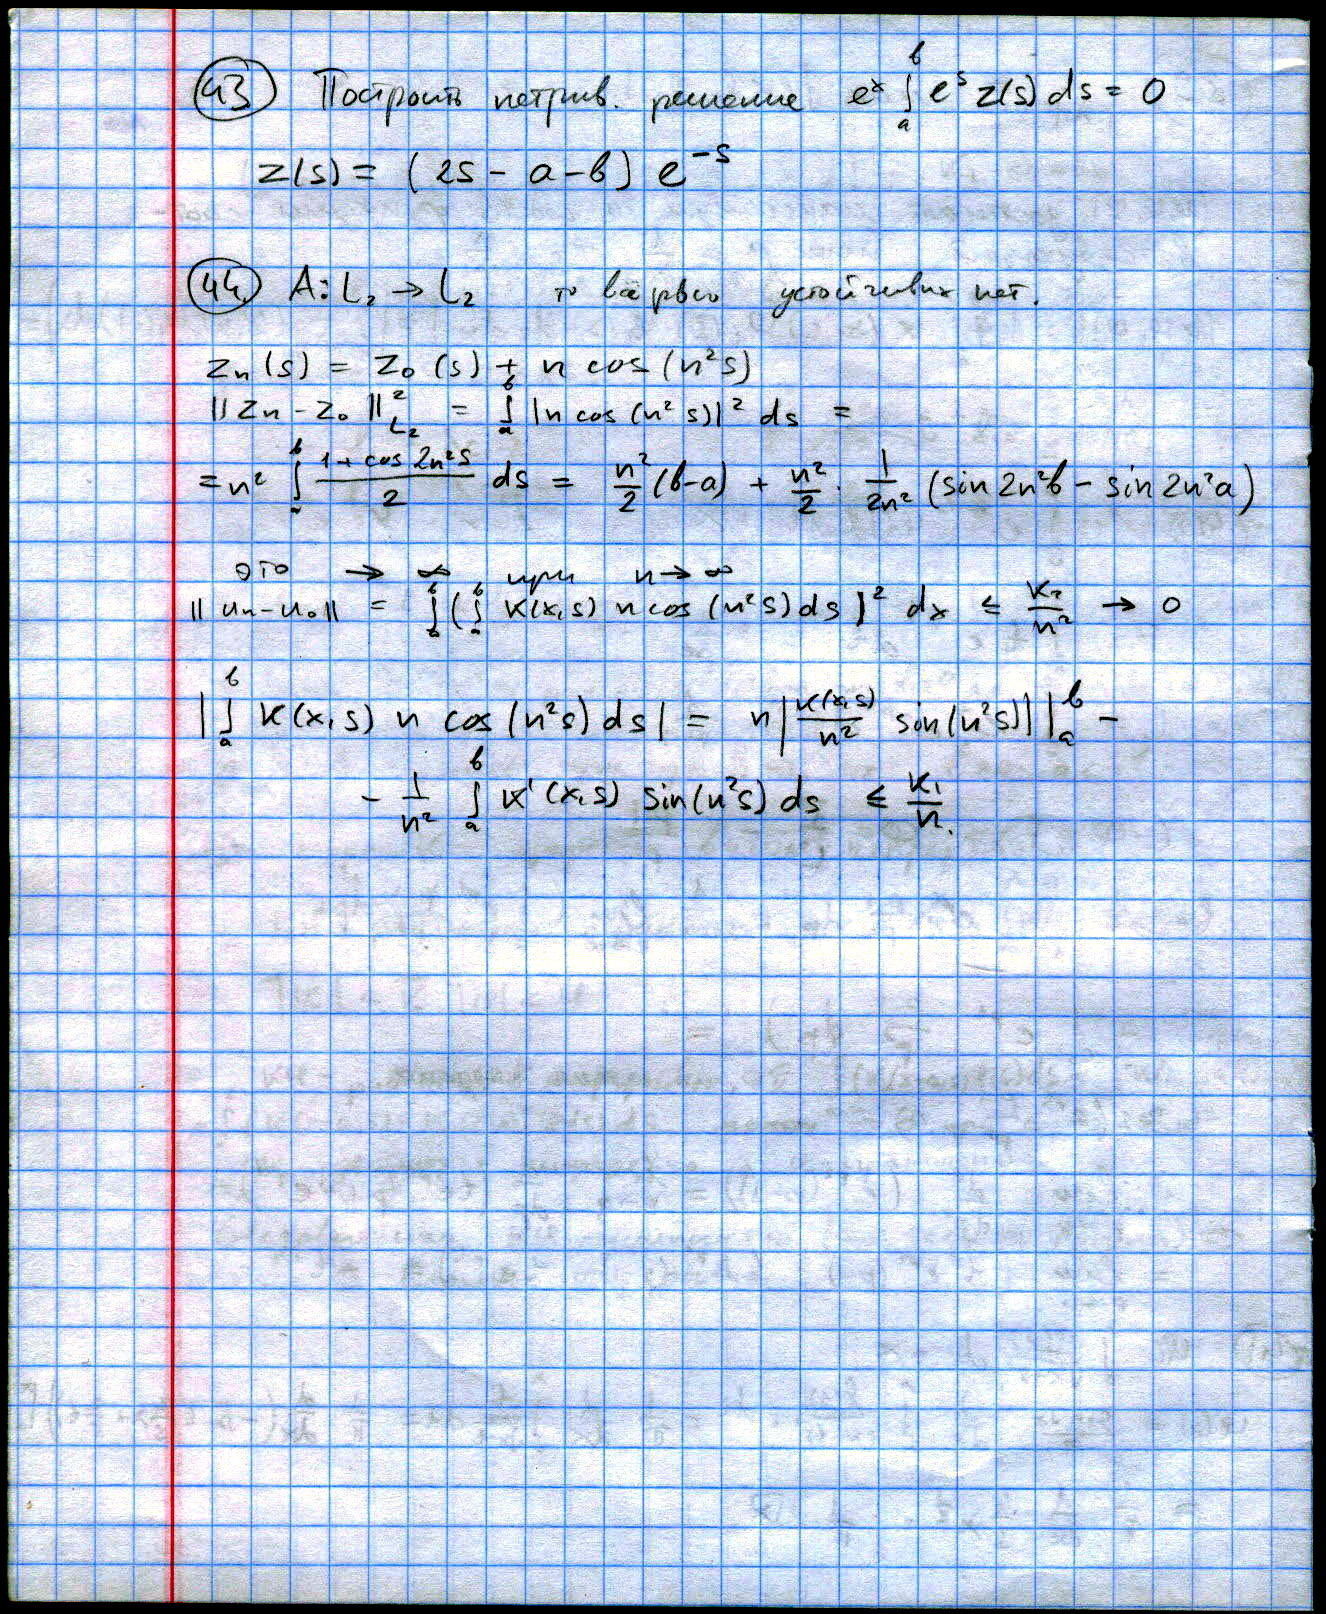 43 Построить нетрив. решение e^x ∫_a^b e^s z(s) ds = 0
z(s) = (2s - a - b) e^{-s}
44. A: L₂ → L₂ то устойчивих нет.
Zn(s) = Z₀(s) + n cos(n²s)
||Zn - Z₀||²_{L₂} = ∫_a^b |n cos(n²s)|² ds =
= n² ∫_a^b (1 + cos 2n²s)/2 ds = n²/2 (b-a) + n²/2 · 1/(2n²) (sin 2n²b - sin 2n²a)
это → ∞ при n → ∞
||un - u₀|| = ∫_a^b (∫_a^b K(x,s) n cos(n²s) ds)² dx ≤ K₂/n² → 0
|∫_a^b K(x,s) n cos(n²s) ds| = n |K(x,s)/n² sin(n²s)| |_a^b -
- 1/n² ∫_a^b K'(x,s) sin(n²s) ds ≤ K₁/n.